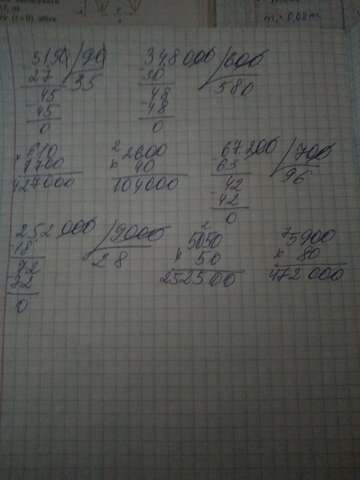 3150 /90
27 35
45
45
0
348000 /600
30 580
48
48
0
610
x 700
427000
2
2600
x 40
104000
67200 /700
63 96
42
42
0
252000 /9000
18 28
72
72
0
2
5050
x 50
252500
7
5900
x 80
472000